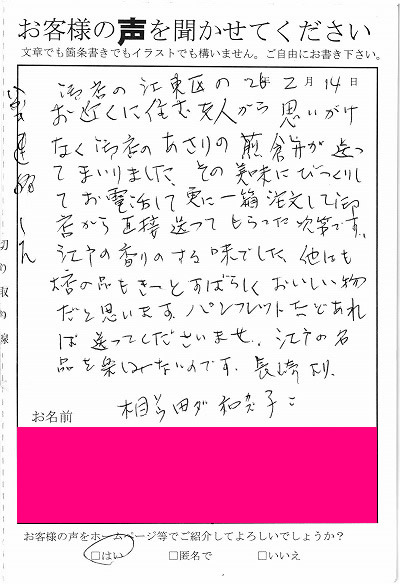 お客様の声を聞かせてください
文章でも箇条書きでもイラストでも構いません。ご自由にお書き下さい。
2月14日
御店の江東区の
お近くに住む友人から思いがけ
なく御店のあさりの煎餅が送っ
てまいりました、その美味にびっくりし
てお電話して更に一箱注文して御
店から直接送ってもらった次第です。
江戸の香りのする味でした、他にも
店の品もきーとすばらしくおいしい物
だと思います、パンフレットなどあれ
ば送ってくださいませ、江戸の名
品を楽しみたいのです、長崎より、
お名前
切り取り線
お客様の声をホームページ等でご紹介してよろしいでしょうか？
□はい □匿名で □いいえ